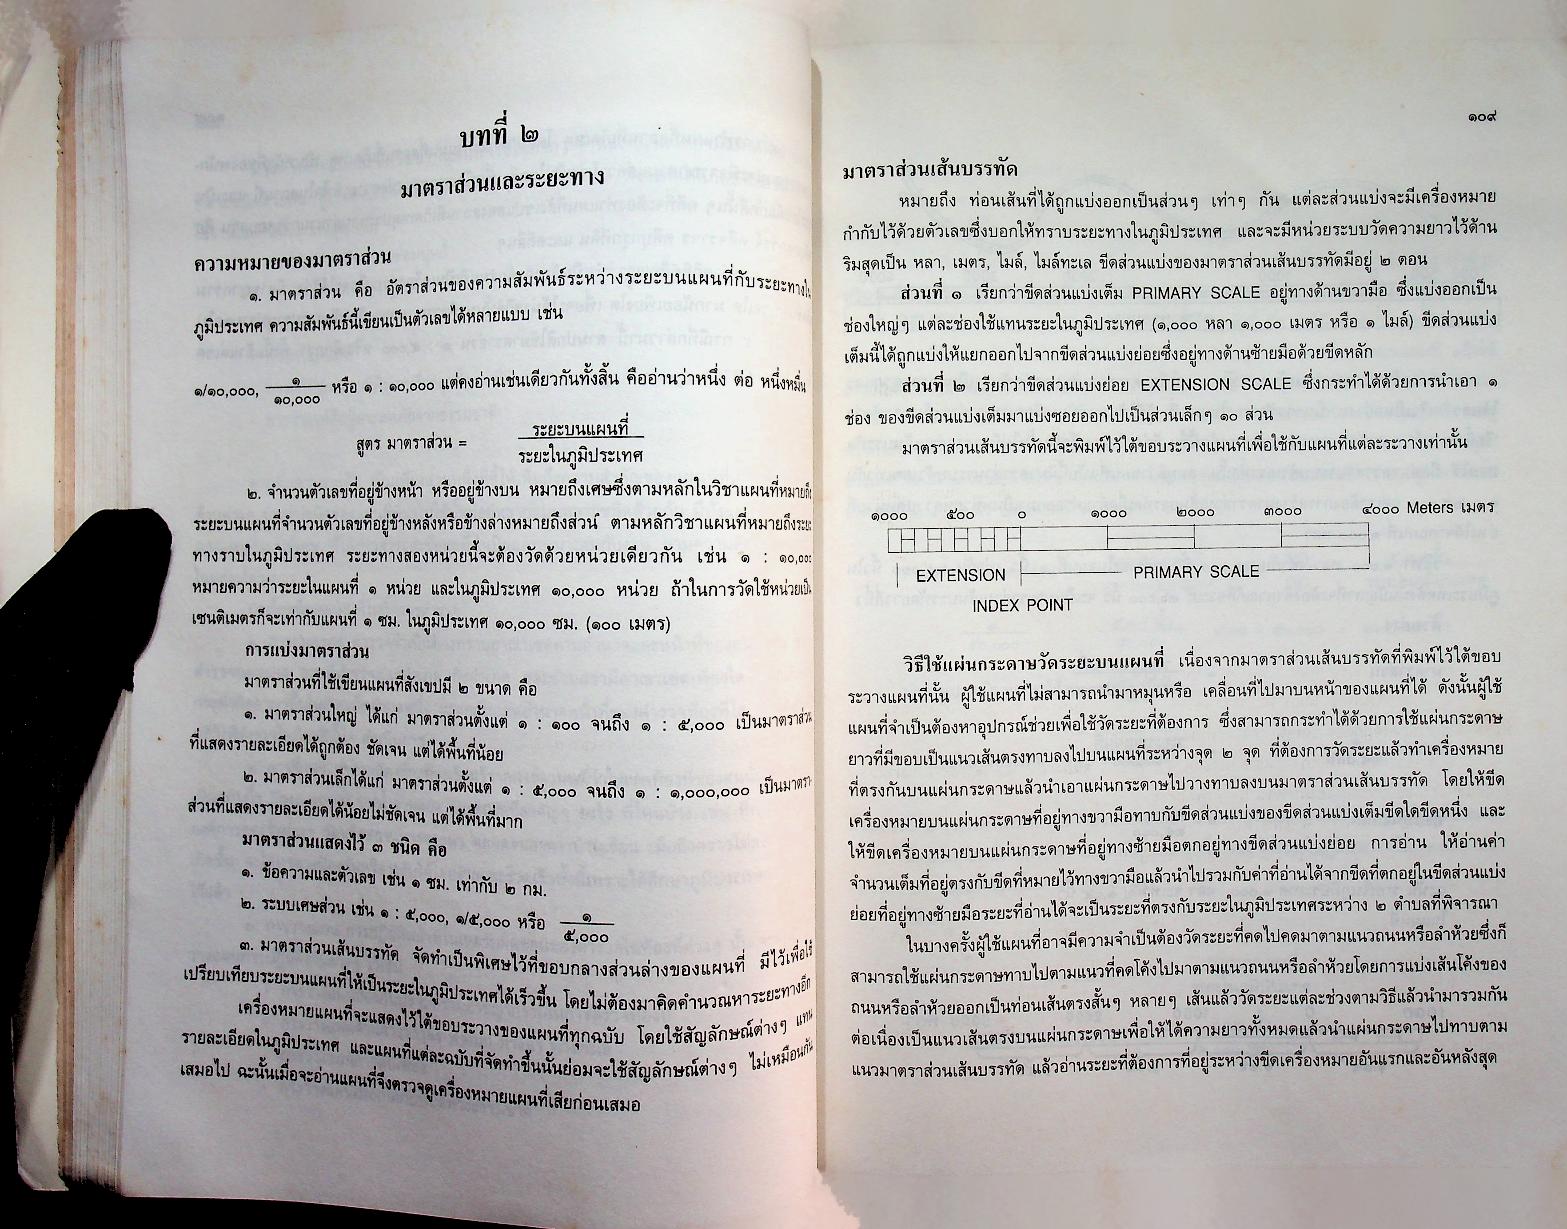 บทที่ ๒
มาตราส่วนและระยะทาง
ความหมายของมาตราส่วน
๑. มาตราส่วน คือ อัตราส่วนของความสัมพันธ์ระหว่างระยะบนแผนที่กับระยะทางใน
ภูมิประเทศ ความสัมพันธ์นี้เขียนเป็นตัวเลขได้หลายแบบ เช่น
๑/๑๐,๐๐๐, ๑/๑๐,๐๐๐ หรือ ๑ : ๑๐,๐๐๐ แต่คงอ่านเช่นเดียวกันทั้งสิ้น คืออ่านว่าหนึ่ง ต่อ หนึ่งหมื่น
สูตร มาตราส่วน = ระยะบนแผนที่
ระยะในภูมิประเทศ
๒. จำนวนตัวเลขที่อยู่ข้างหน้า หรืออยู่ข้างบน หมายถึงเศษซึ่งตามหลักในวิชาแผนที่หมายถึง
ระยะบนแผนที่จำนวนตัวเลขที่อยู่ข้างหลังหรือข้างล่างหมายถึงส่วน ตามหลักวิชาแผนที่หมายถึงระยะ
ทางราบในภูมิประเทศ ระยะทางสองหน่วยนี้จะต้องวัดด้วยหน่วยเดียวกัน เช่น ๑ : ๑๐,๐๐๐
หมายความว่าระยะในแผนที่ ๑ หน่วย และในภูมิประเทศ ๑๐,๐๐๐ หน่วย ถ้าในการวัดใช้หน่วยเป็น
เซนติเมตรก็จะเท่ากับแผนที่ ๑ ซม. ในภูมิประเทศ ๑๐,๐๐๐ ซม. (๑๐๐ เมตร)
การแบ่งมาตราส่วน
มาตราส่วนที่ใช้เขียนแผนที่สังเขปมี ๒ ขนาด คือ
๑. มาตราส่วนใหญ่ ได้แก่ มาตราส่วนตั้งแต่ ๑ : ๑๐๐ จนถึง ๑ : ๕,๐๐๐ เป็นมาตราส่วน
ที่แสดงรายละเอียดได้ถูกต้อง ชัดเจน แต่ได้พื้นที่น้อย
๒. มาตราส่วนเล็กได้แก่ มาตราส่วนตั้งแต่ ๑ : ๕,๐๐๐ จนถึง ๑ : ๑,๐๐๐,๐๐๐ เป็นมาตรา-
ส่วนที่แสดงรายละเอียดได้น้อยไม่ชัดเจน แต่ได้พื้นที่มาก
มาตราส่วนแสดงไว้ ๓ ชนิด คือ
๑. ข้อความและตัวเลข เช่น ๑ ซม. เท่ากับ ๒ กม.
๒. ระบบเศษส่วน เช่น ๑ : ๕,๐๐๐, ๑/๕,๐๐๐ หรือ ๑/๕,๐๐๐
๓. มาตราส่วนเส้นบรรทัด จัดทำเป็นพิเศษไว้ที่ขอบกลางส่วนล่างของแผนที่ มีไว้เพื่อใช้
เปรียบเทียบระยะบนแผนที่ให้เป็นระยะในภูมิประเทศได้เร็วขึ้น โดยไม่ต้องมาคิดคำนวณหาระยะทางอีก
เครื่องหมายแผนที่จะแสดงไว้ใต้ขอบระวางของแผนที่ทุกฉบับ โดยใช้สัญลักษณ์ต่างๆ แทน
รายละเอียดในภูมิประเทศ และแผนที่แต่ละฉบับที่จัดทำขึ้นนั้นย่อมจะใช้สัญลักษณ์ต่างๆ ไม่เหมือนกัน
เสมอไป ฉะนั้นเมื่อจะอ่านแผนที่จึงตรวจดูเครื่องหมายแผนที่เสียก่อนเสมอ
๑๐๙
มาตราส่วนเส้นบรรทัด
หมายถึง ท่อนเส้นที่ได้ถูกแบ่งออกเป็นส่วนๆ เท่าๆ กัน แต่ละส่วนแบ่งจะมีเครื่องหมาย
กำกับไว้ด้วยตัวเลขซึ่งบอกให้ทราบระยะทางในภูมิประเทศ และจะมีหน่วยระบบวัดความยาวไว้ด้าน
ริมสุดเป็น หลา, เมตร, ไมล์, ไมล์ทะเล ขีดส่วนแบ่งของมาตราส่วนเส้นบรรทัดมีอยู่ ๒ ตอน
ส่วนที่ ๑ เรียกว่าขีดส่วนแบ่งเต็ม PRIMARY SCALE อยู่ทางด้านขวามือ ซึ่งแบ่งออกเป็น
ช่องใหญ่ๆ แต่ละช่องใช้แทนระยะในภูมิประเทศ (๑,๐๐๐ หลา ๑,๐๐๐ เมตร หรือ ๑ ไมล์) ขีดส่วนแบ่ง
เต็มนี้ได้ถูกแบ่งให้แยกออกไปจากขีดส่วนแบ่งย่อยซึ่งอยู่ทางด้านซ้ายมือด้วยขีดหลัก
ส่วนที่ ๒ เรียกว่าขีดส่วนแบ่งย่อย EXTENSION SCALE ซึ่งกระทำได้ด้วยการนำเอา ๑
ช่อง ของขีดส่วนแบ่งเต็มมาแบ่งซอยออกไปเป็นส่วนเล็กๆ ๑๐ ส่วน
มาตราส่วนเส้นบรรทัดนี้จะพิมพ์ไว้ใต้ขอบระวางแผนที่เพื่อใช้กับแผนที่แต่ละระวางเท่านั้น
๑๐๐๐ ๕๐๐ ๐ ๑๐๐๐ ๒๐๐๐ ๓๐๐๐ ๔๐๐๐ Meters เมตร
EXTENSION PRIMARY SCALE
INDEX POINT
วิธีใช้แผ่นกระดาษวัดระยะบนแผนที่ เนื่องจากมาตราส่วนเส้นบรรทัดที่พิมพ์ไว้ใต้ขอบ
ระวางแผนที่นั้น ผู้ใช้แผนที่ไม่สามารถนำมาหมุนหรือ เคลื่อนที่ไปมาบนหน้าของแผนที่ได้ ดังนั้นผู้ใช้
แผนที่จำเป็นต้องหาอุปกรณ์ช่วยเพื่อใช้วัดระยะที่ต้องการ ซึ่งสามารถกระทำได้ด้วยการใช้แผ่นกระดาษ
ยาวที่มีขอบเป็นแนวเส้นตรงทาบลงไปบนแผนที่ระหว่างจุด ๒ จุด ที่ต้องการวัดระยะแล้วทำเครื่องหมาย
ที่ตรงกันบนแผ่นกระดาษแล้วนำเอาแผ่นกระดาษไปวางทาบลงบนมาตราส่วนเส้นบรรทัด โดยให้ขีด
เครื่องหมายบนแผ่นกระดาษที่อยู่ทางขวามือทาบกับขีดส่วนแบ่งของขีดส่วนแบ่งเต็มขีดใดขีดหนึ่ง และ
ให้ขีดเครื่องหมายบนแผ่นกระดาษที่อยู่ทางซ้ายมือตกอยู่ทางขีดส่วนแบ่งย่อย การอ่าน ให้อ่านค่า
จำนวนเต็มที่อยู่ตรงกับขีดที่หมายไว้ทางขวามือแล้วนำไปรวมกับค่าที่อ่านได้จากขีดที่ตกอยู่ในขีดส่วนแบ่ง
ย่อยที่อยู่ทางซ้ายมือระยะที่อ่านได้จะเป็นระยะที่ตรงกับระยะในภูมิประเทศระหว่าง ๒ ตำบลที่พิจารณา
ในบางครั้งผู้ใช้แผนที่อาจมีความจำเป็นต้องวัดระยะที่คดไปคดมาตามแนวถนนหรือลำห้วยซึ่งก็
สามารถใช้แผ่นกระดาษทาบไปตามแนวที่คดโค้งไปมาตามแนวถนนหรือลำห้วยโดยการแบ่งเส้นโค้งของ
ถนนหรือลำห้วยออกเป็นท่อนเส้นตรงสั้นๆ หลายๆ เส้นแล้ววัดระยะแต่ละช่วงตามวิธีแล้วนำมารวมกัน
ต่อเนื่องเป็นแนวเส้นตรงบนแผ่นกระดาษเพื่อให้ได้ความยาวทั้งหมดแล้วนำแผ่นกระดาษไปทาบตาม
แนวมาตราส่วนเส้นบรรทัด แล้วอ่านระยะที่ต้องการที่อยู่ระหว่างขีดเครื่องหมายอันแรกและอันหลังสุด